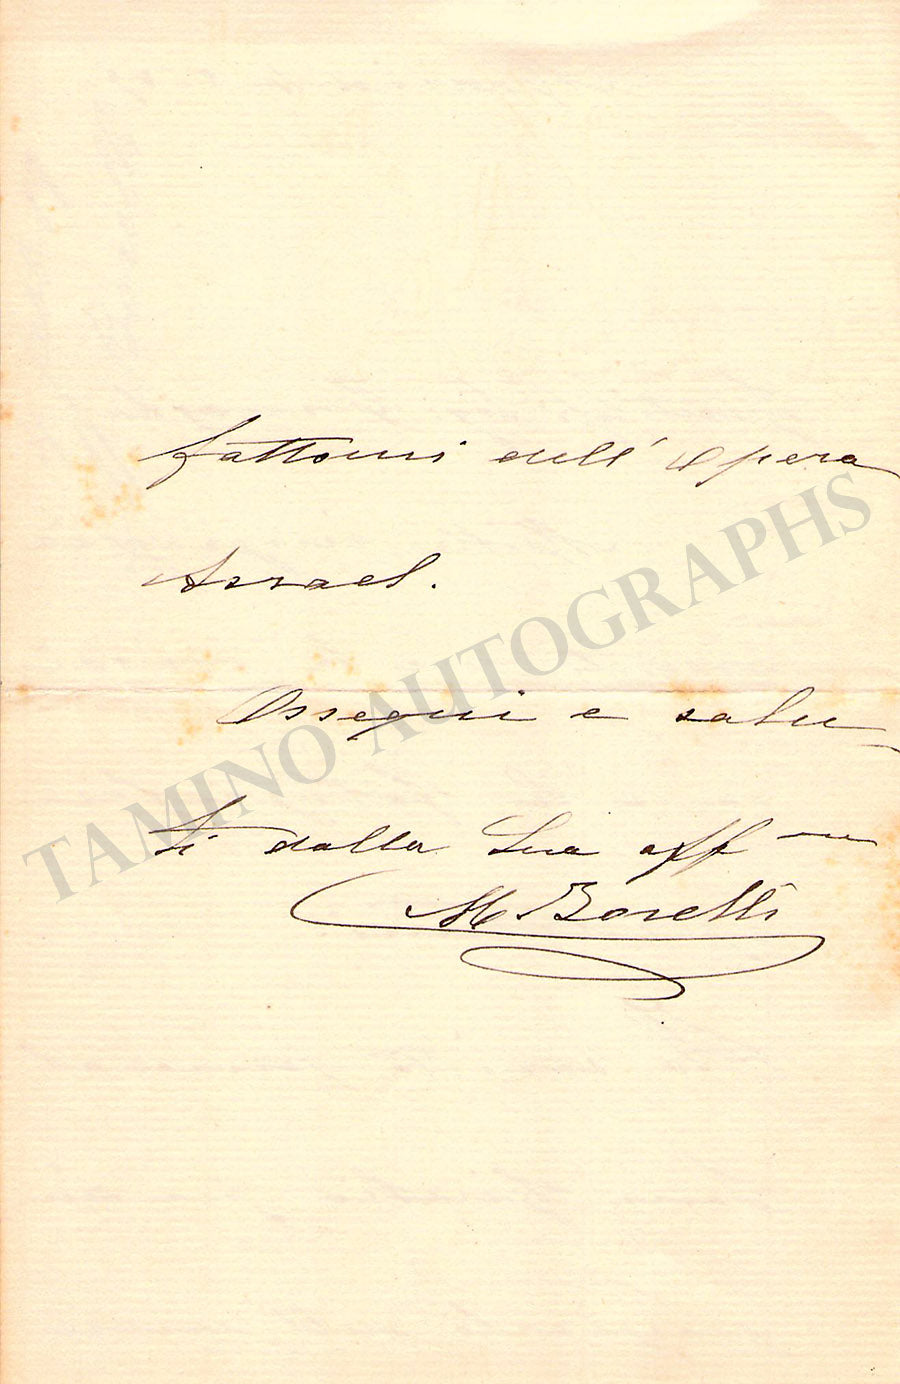 fattomi dell' Opera
Asrael.
Ossequi e salu-
ti dalla Sua aff ma
M Borelli
TAMINO AUTOGRAPHS